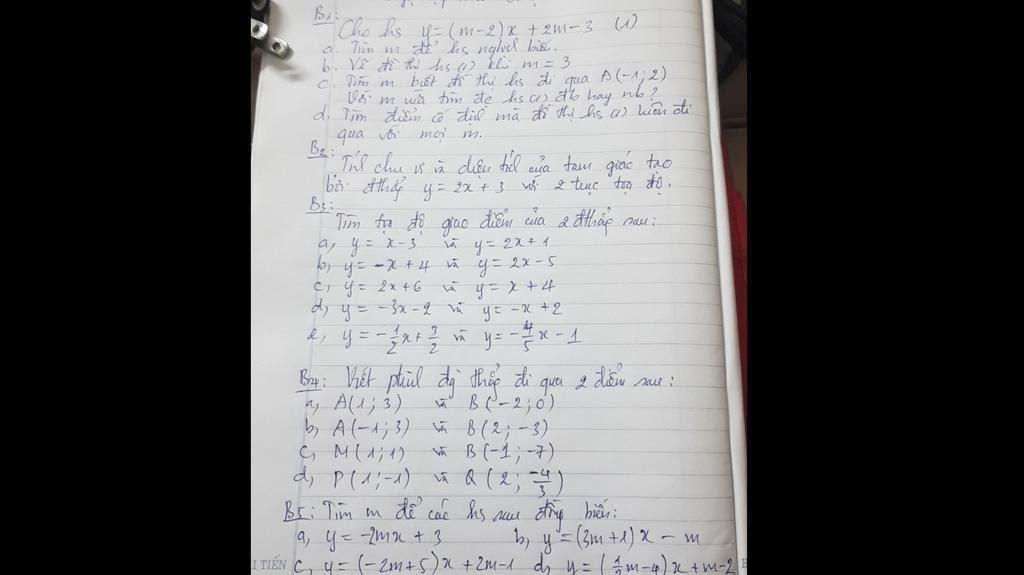 B1:
Cho hs y = (m-2)x + 2m-3 (1)
a. Tìm m để hs nghịch biến.
b. Vẽ đồ thị hs (1) khi m = 3
c. Tìm m biết đồ thị hs đi qua A(-1; 2)
Với m vừa tìm đc hs (1) đb hay nb?
d. Tìm điểm cố định mà đồ thị hs (1) luôn đi
qua với mọi m.
B2:
Tính chu vi và diện tích của tam giác tạo
bởi đthẳg y = 2x + 3 với 2 trục tọa độ.
B3:
Tìm tọa độ giao điểm của 2 đthẳg sau:
a, y = x-3 và y = 2x + 1
b, y = -x + 4 và y = 2x - 5
c, y = 2x + 6 và y = x + 4
d, y = -3x - 2 và y = -x + 2
e, y = -1/2x + 3/2 và y = -4/5x - 1
B4: Viết ptrình đg thẳg đi qua 2 điểm sau:
a, A(1; 3) và B(-2; 0)
b, A(-1; 3) và B(2; -3)
c, M(1; 1) và B(-1; -7)
d, P(1; -1) và Q(2; -4/3)
B5: Tìm m để các hs sau đồng biến:
a, y = -2mx + 3 b, y = (3m+1)x - m
c, y = (-2m+5)x + 2m-1 d, y = (1/2m-4)x + m-2
I TIẾN